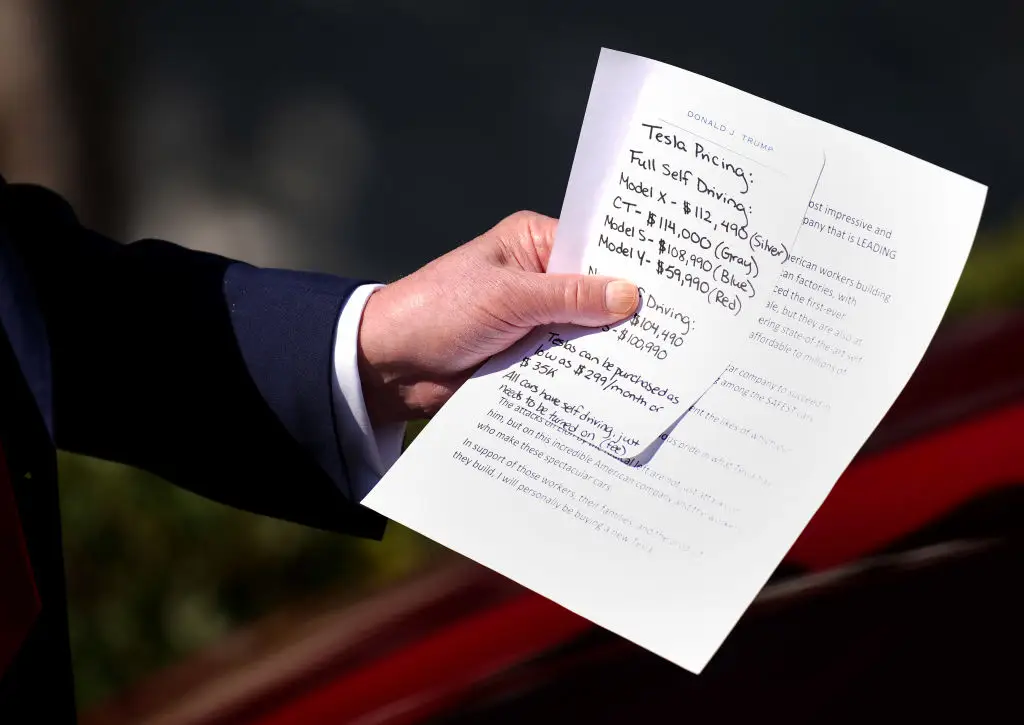 DONALD J. TRUMP
Tesla Pricing:
Full Self Driving:
Model X - $112,490 (Silver)
CT - $114,000 (Gray)
Model S - $108,990 (Blue)
Model Y - $59,990 (Red)
Driving:
$104,490
- $100,990
Teslas can be purchased as
low as $299/month or
$35K
All cars have self driving, just
needs to be turned on (Fee)
impressive and
that is LEADING
workers building
factories, with
the first-ever
but they are also at
state-of-the-art
affordable to millions of
company to succeed in
among the SAFEST cars
the likes of which
pride in what Tesla has
The attacks on left are not just attacks on
him, but on this incredible American company and the
who make these spectacular cars.
In support of those workers, their families, and the
they build, I will personally be buying a new Tesla